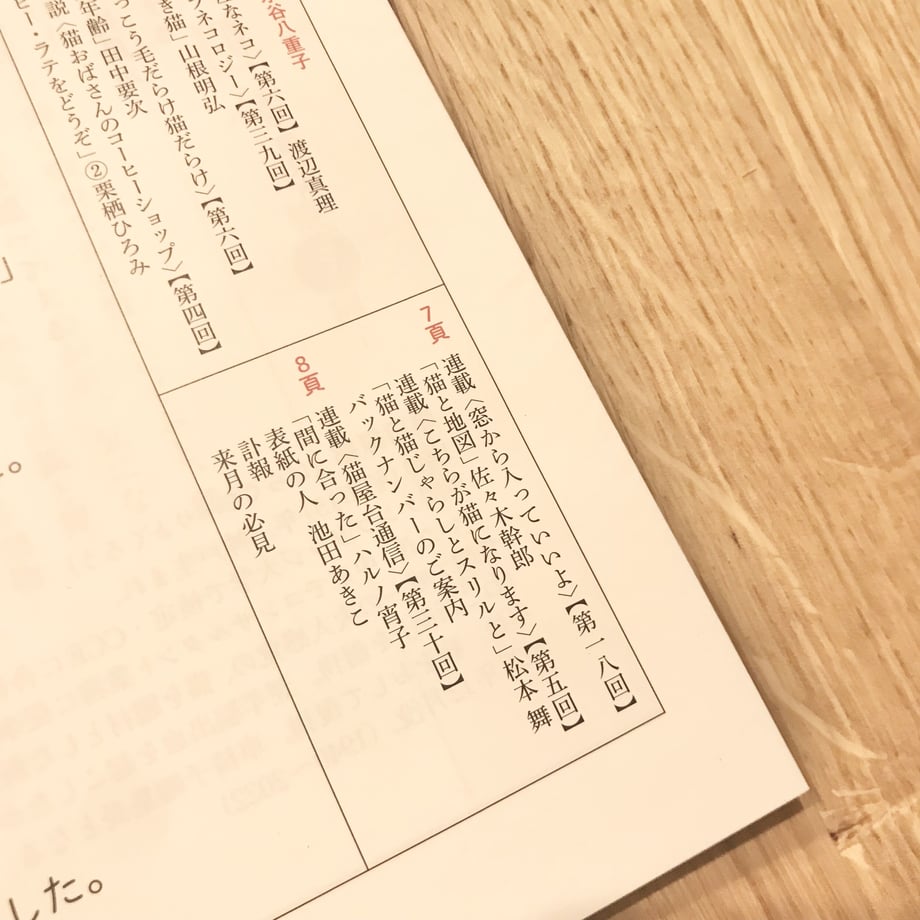 谷八重子
なネコ〉【第六回】 渡辺真理
ネコロジー〉【第三九回】
き猫」山根明弘
っこう毛だらけ猫だらけ〉【第六回】
年齢」田中要次
説〈猫おばさんのコーヒーショップ〉【第四回】
ヒー・ラテをどうぞ」②栗栖ひろみ
7頁
連載〈窓から入っていいよ〉【第一八回】
「猫と地図」佐々木幹郎
連載〈こちらが猫になります〉【第五回】
「猫と猫じゃらしとスリルと」松本 舞
バックナンバーのご案内
8頁
連載〈猫屋台通信〉【第三十回】
「間に合った」ハルノ宵子
表紙の人 池田あきこ
訃報
来月の必見
」
。
した。